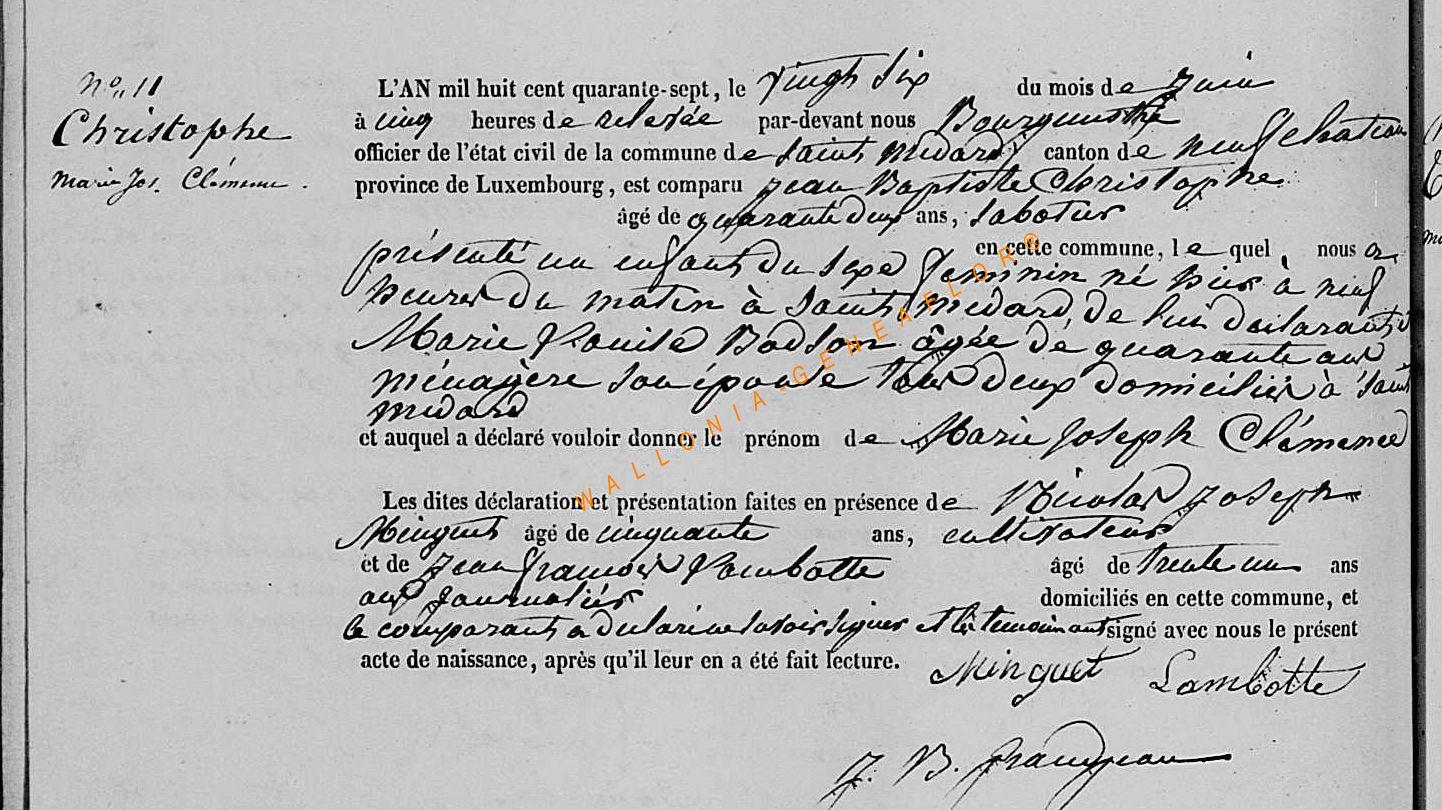 No 11
Christophe
Marie Jos. Clémence.
L'AN mil huit cent quarante-sept, le vingt six du mois de Juin
à cinq heures de relevée par-devant nous Bourguemestre
officier de l'état civil de la commune de Saint Medard, canton de neufchateau
province de Luxembourg, est comparu Jean Baptiste Christophe
âgé de quarante deux ans, Sabotier
en cette commune, lequel, nous a
présenté un enfant du sexe feminin né hier à neuf
heures du matin à Saint medard, de lui déclarant et
Marie Louise Bodson âgée de quarante ans
ménagère son épouse tous deux domiciliés à Saint
medard
et auquel a déclaré vouloir donner le prénom de Marie Joseph Clémence
Les dites déclaration et présentation faites en présence de Nicolas Joseph
Minguet âgé de cinquante ans, cultivateur
et de Jean françois Lambotte âgé de trente un ans
ans journalier domiciliés en cette commune, et
le comparant a declaré ne savoir signer et les temoins ont signé avec nous le présent
acte de naissance, après qu'il leur en a été fait lecture.
Minguet Lambotte
J. B. Grandjean
WALLONIA-GENEAFLOR®